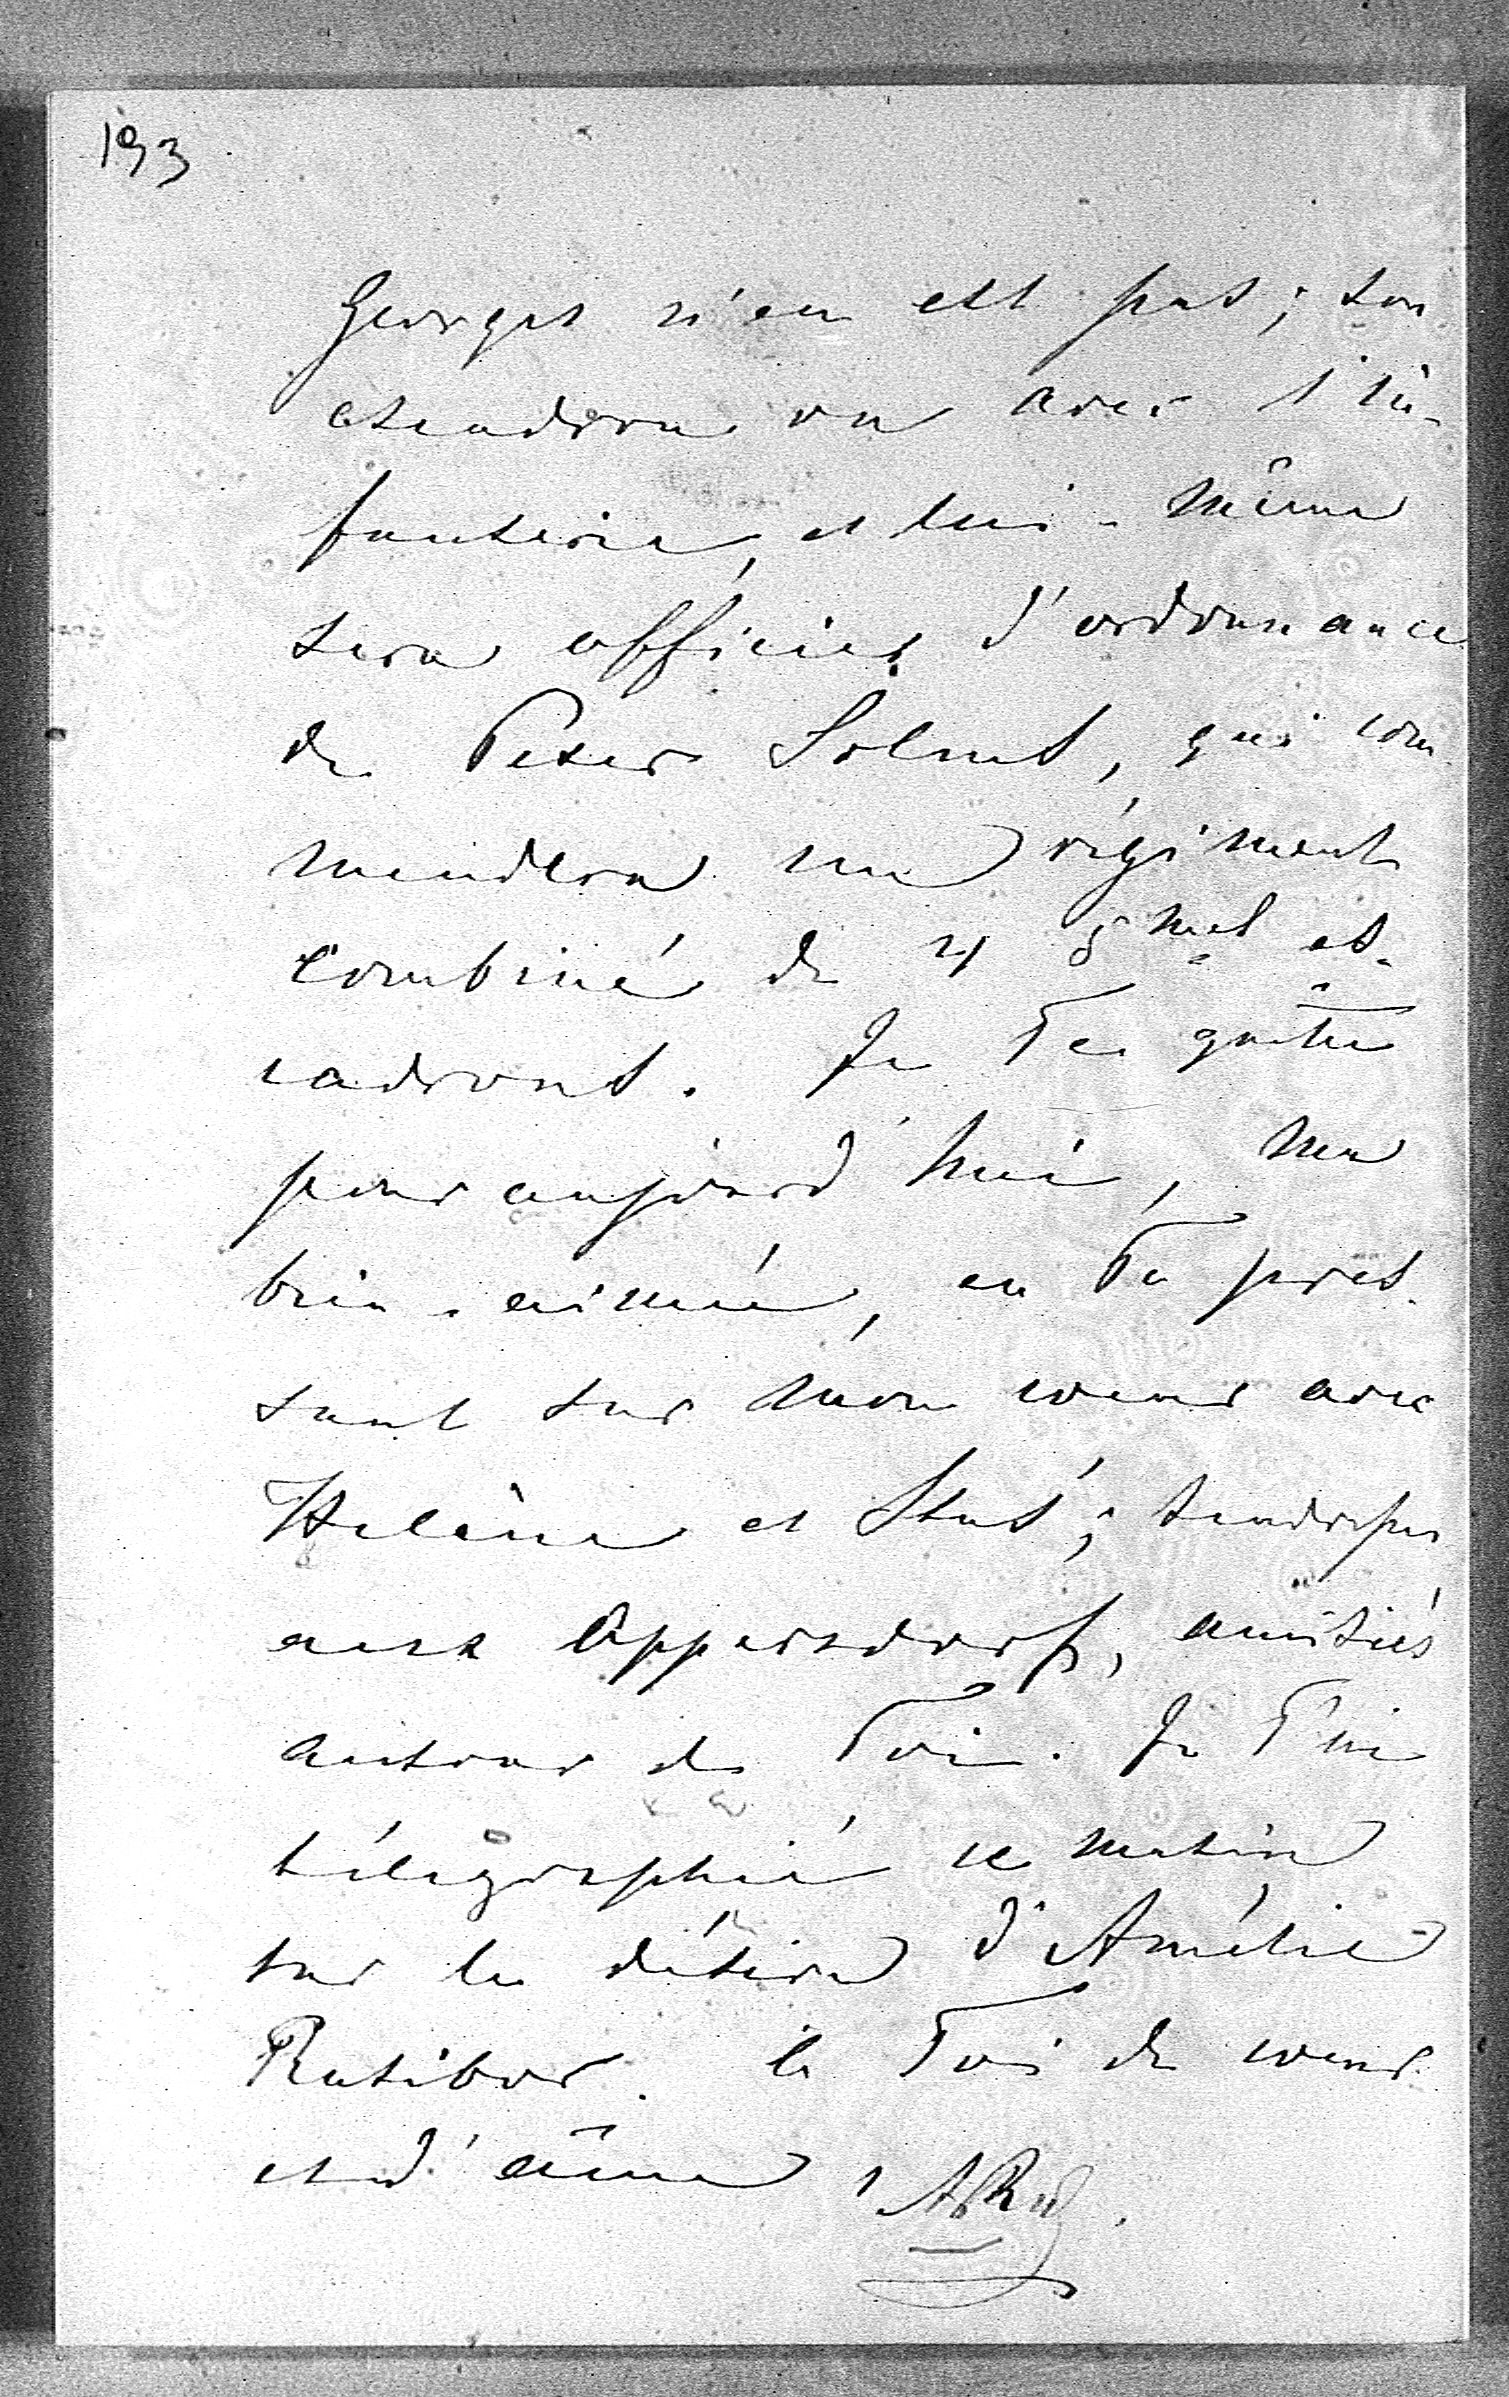 193
Georges n'en est pas ; son
escadron va avec l'in-
fanterie, et lui-même
sera officier d'ordonnance
de Peter Solms, qui com-
mandera un régiment
combiné de 4 5mes es-
cadrons. Je Te quitte
pour aujourd'hui, ma
bien-aimée, en Te pres-
sant sur mon coeur avec
Helène et Stas ; tendresses
aux Oppersdorff, amitiés
autour de Toi. Je T'ai
télégraphié ce matin
sur le désir d'Amélie
Ratibor. à Toi de coeur
et d'âme